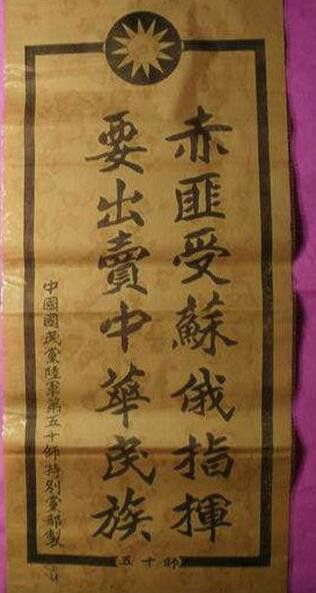 赤匪受蘇俄指揮
要出賣中華民族
中國國民黨陸軍第五十師特別黨部製
師十五